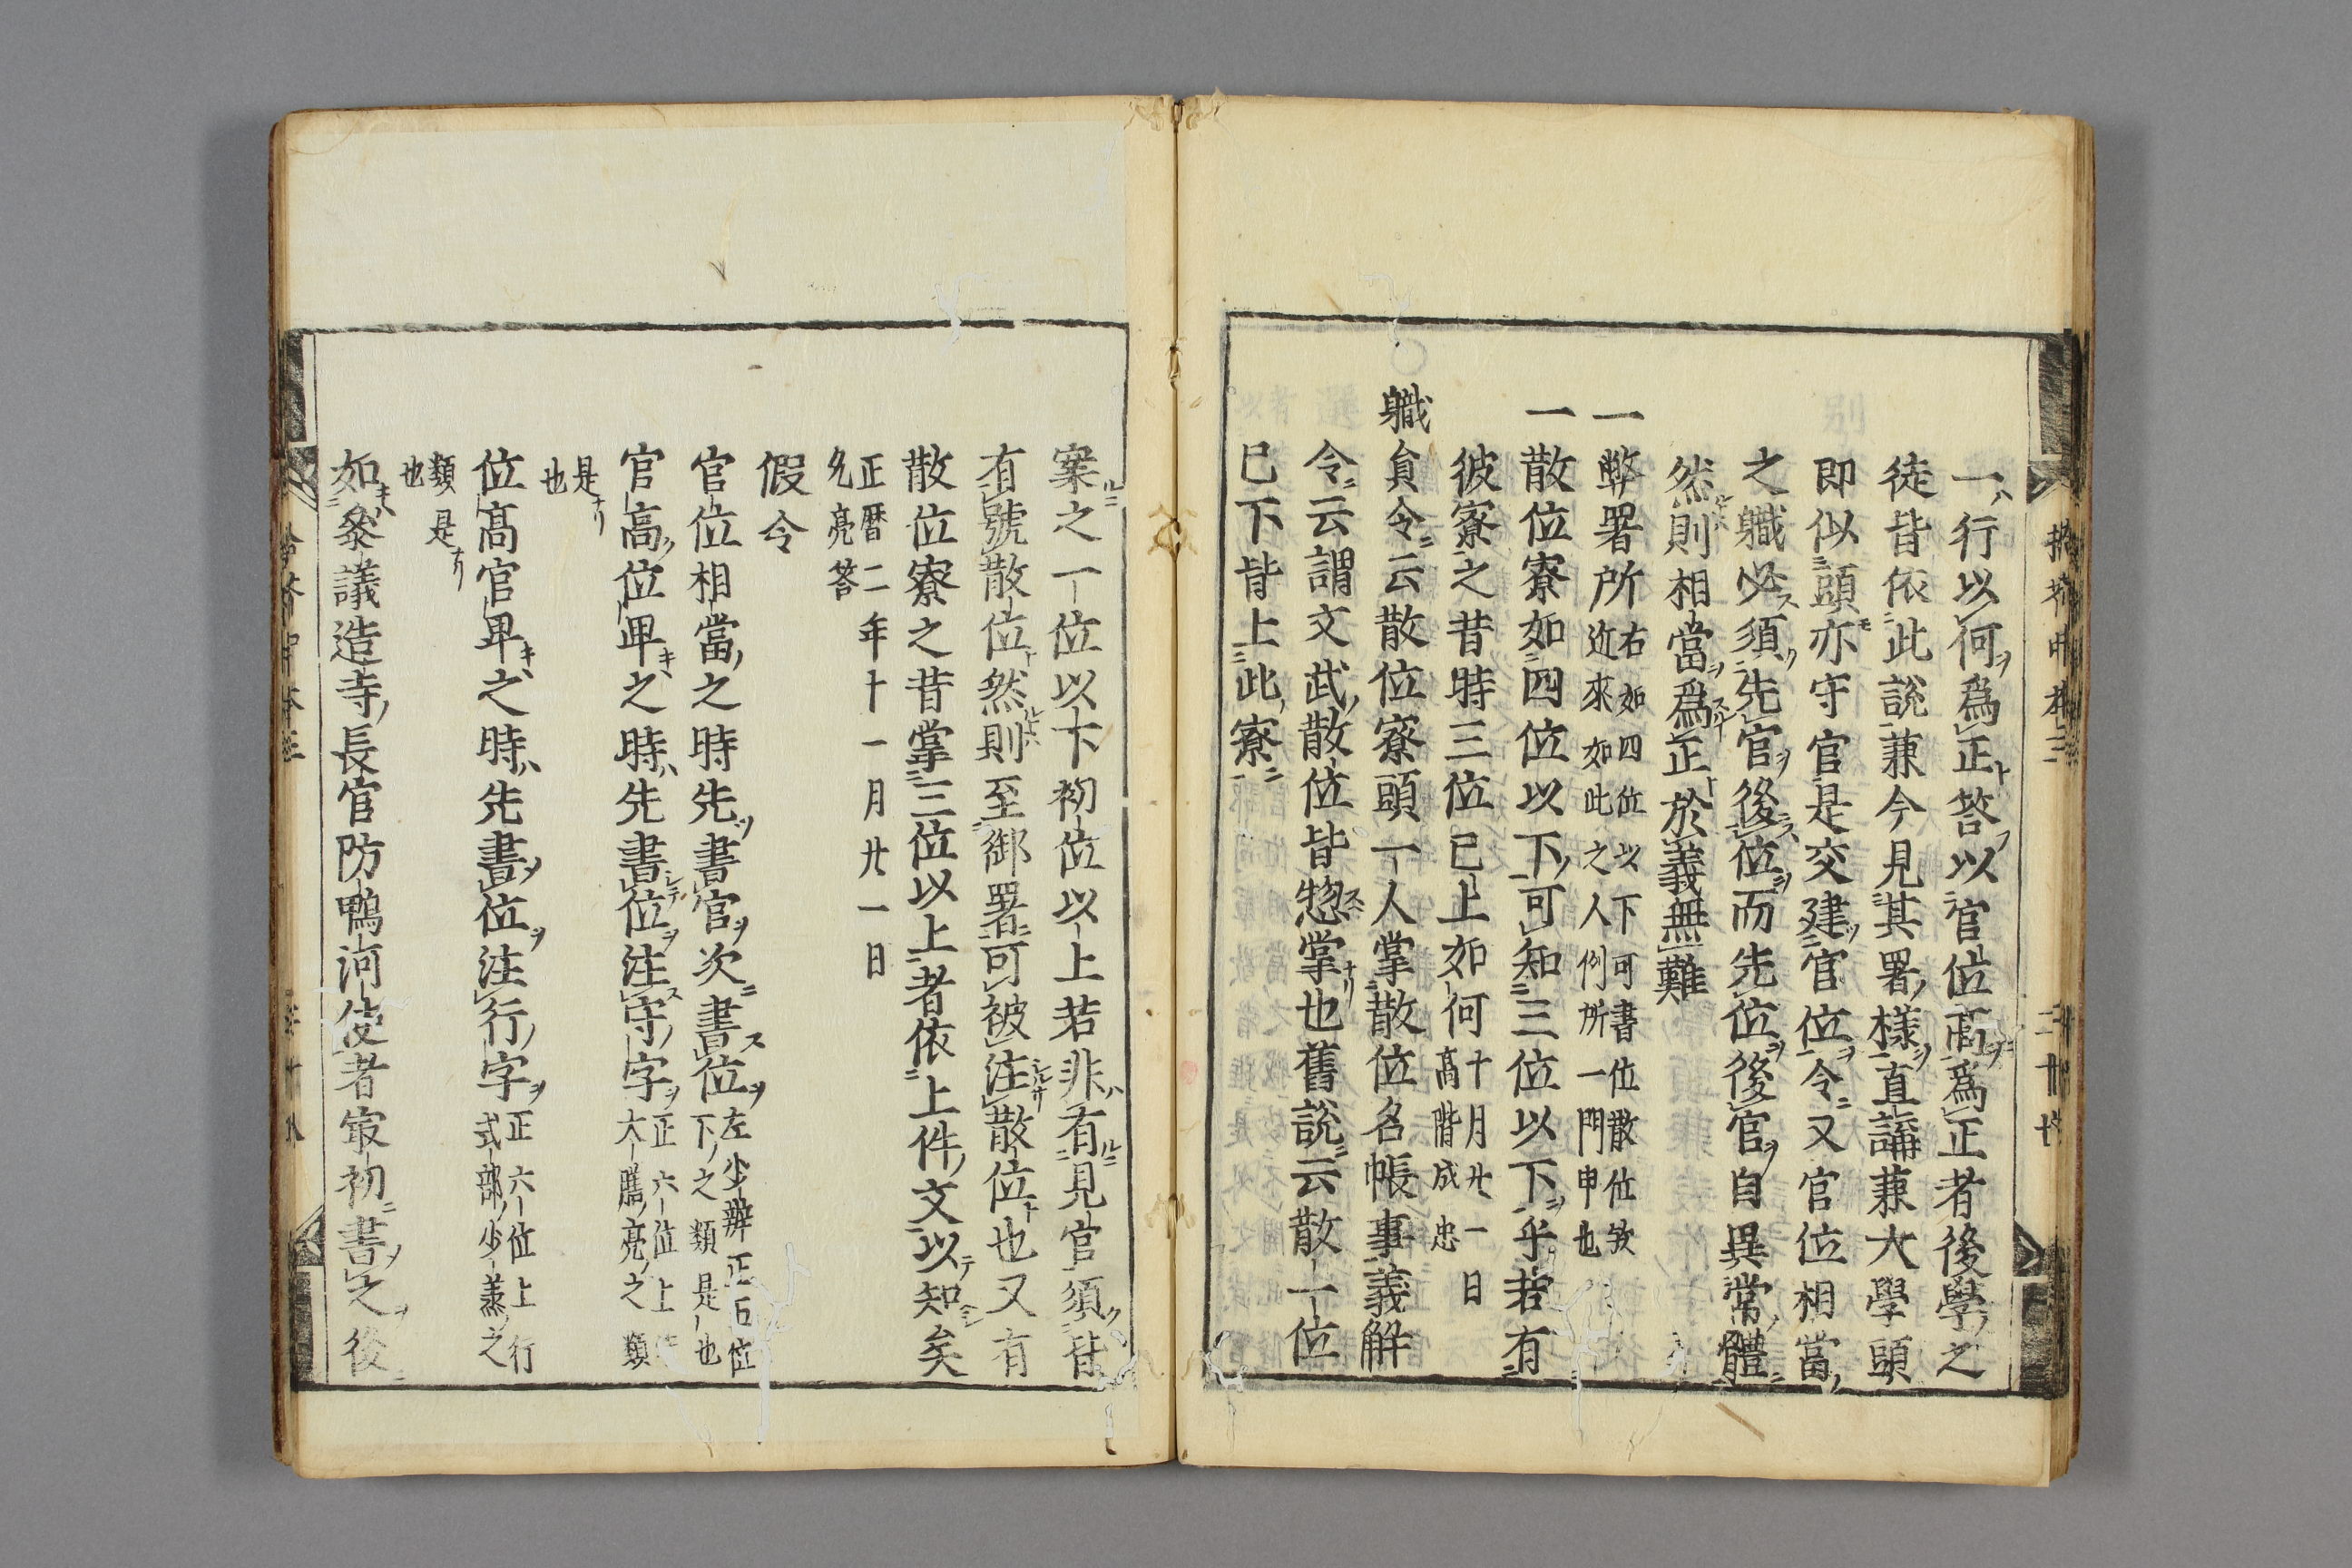 一行以何爲正答以官位兩爲正者後學之
徒皆依此説兼今見其署樣直講兼大學頭
即似頭亦守官是交建官位令又官位相當
之職必須先官後位而先位後官自異常體
然則相當爲正於義無難
一弊署所右如四位以下可書位散位致
近來如此之人例所一門申也
一散位寮如四位以下可知三位以下乎若有
彼寮之昔時三位已上如何十月廿一日
高階成忠
職員令云散位寮頭一人掌散位名帳事義解
令云謂文武散位皆惣掌也舊説云散一位
已下皆上此寮
案之一位以下初位以上若非有見官須皆
有號散位然則至御署可被注散位也又有
散位寮之昔掌三位以上者依上件文以知矣
正暦二年十一月廿一日
允亮答
假令
官位相當之時先書官次書位左少辨正五位
下之類是也
官高位卑之時先書位注守字正六位上
大膳亮之類
是
也
位高官卑之時先書位注行字正六位上行
式部少義之
類是
也
如參議造寺長官防鴨河使者最初書之後